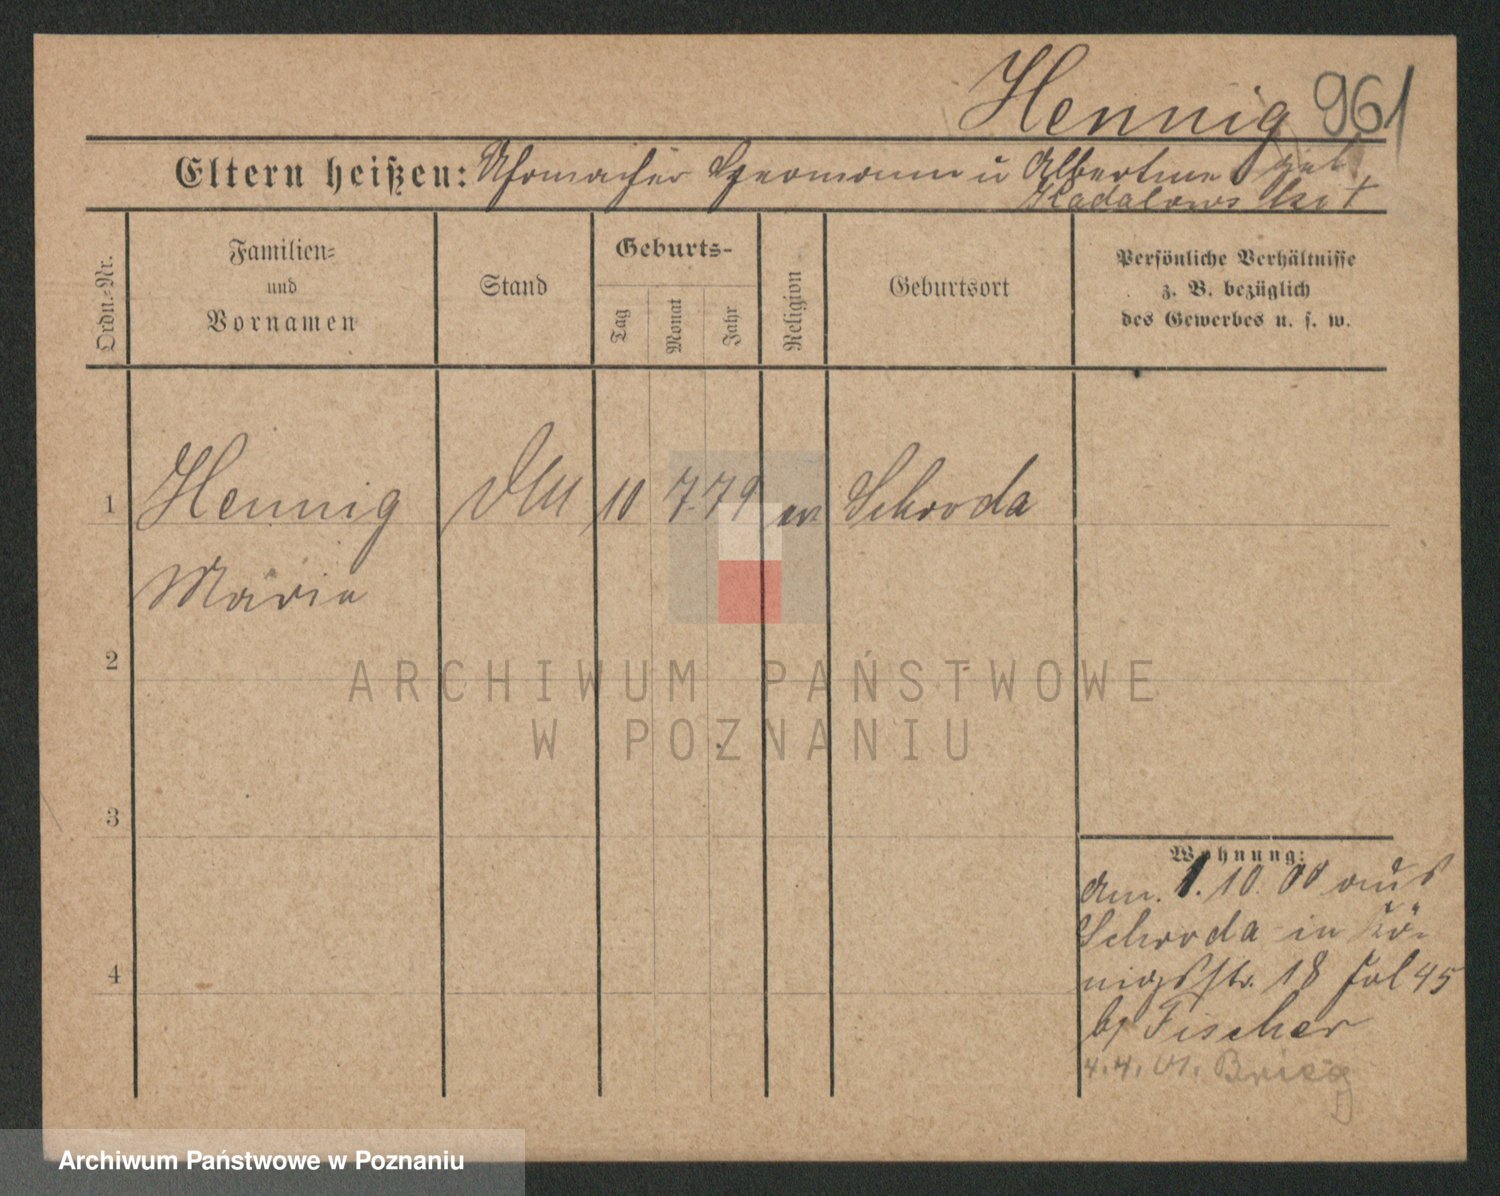 Hennig 961
Eltern heißen: Uhrmacher Hermann u Albertine geb
Kadalowski †
Ordn.-Nr.
Familien-
und
Vornamen
Stand
Geburts-
Tag
Monat
Jahr
Religion
Geburtsort
Persönliche Verhältnisse
z. B. bezüglich
des Gewerbes u. s. w.
1 Hennig 10 7. 79 ev Schroda
Marie
2
3
4
Wohnung:
am. 1. 10. 00 aus
Schroda in Kö-
nigsstr. 18 Jul 45
b/ Fischer
4. 4. 01. Brieg
ARCHIWUM PAŃSTWOWE
W POZNANIU
Archiwum Państwowe w Poznaniu